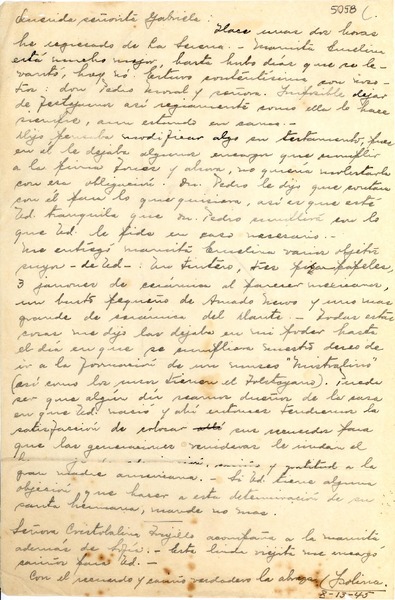 5958 (
Querida señorita Gabriela:
Hace unas dos horas
he regresado de la Serena. - Mamita Emelina
está mucho mejor, hasta hubo días que se le-
vantó, hoy nó. Estuvo contentísima con noso-
tros: don Pedro Moral y señora. Imposible dejar
de festejarnos así regiamente como ella lo hace
siempre, aun estando en cama. -
Dijo pensaba modificar algo su testamento, pues
en él le dejaba algunos encargos que cumplir
a la firma y ahora, no quería molestarlo
con esa obligación. Dn. Pedro le dijo que contara
con él para lo que quisiera, así es que esté
Ud. tranquila que Dn. Pedro cumplirá con lo
que Ud. le pida en caso necesario. -
Me entregó mamita Emelina varios objetos
suyos - de Ud: Un tintero, tres papeles,
3 jarrones de cerámica al parecer mexicanos,
un busto pequeño de Amado Nervo y uno mas
grande de cerámica del Dante. - Todas estas
cosas me dijo las dejaba en mi poder hasta
el día en que se cumplieran nuestros deseos de
ir a la formación de un museo "Mistraliano"
(así como los rusos tienen el Tolstoyano). Puede
ser que algún día seamos dueños de la casa
en que Ud. nació y ahí entonces tendremos la
satisfacción de colocar sus recuerdos para
que las generaciones venideras le rindan el
cariño y gratitud a la
gran madre americana. - Si Ud. tiene alguna
objeción que hacer a esta determinación de su
santa hermana, mande no mas.
Señora Cristolalina Trujillo acompaña a la mamita
además de - Esta linda viejita me encargó
cariños para Ud. -
Con el recuerdo y cariño verdadero la abraza Isolina.
8-13-45